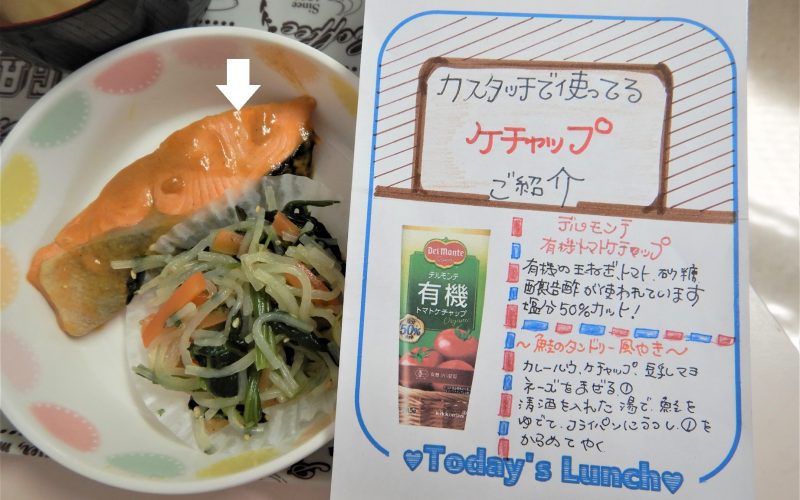 カスタッチで使ってる
ケチャップ
ご紹介
Del Monte
デルモンテ
有機
トマトケチャップ
Organic
50%
デルモンテ
有機トマトケチャップ
有機の玉ねぎ、トマト、砂糖
醸造酢が使われています
塩分50%カット!
~鮭のタンドリー風やき~
カレールウ、ケチャップ、豆乳マヨ
ネーズをまぜる①
清酒を入れた湯で、鮭を
ゆでて、フライパンにうつし、①を
からめてやく
♥Today's Lunch♥
Since
Coffee